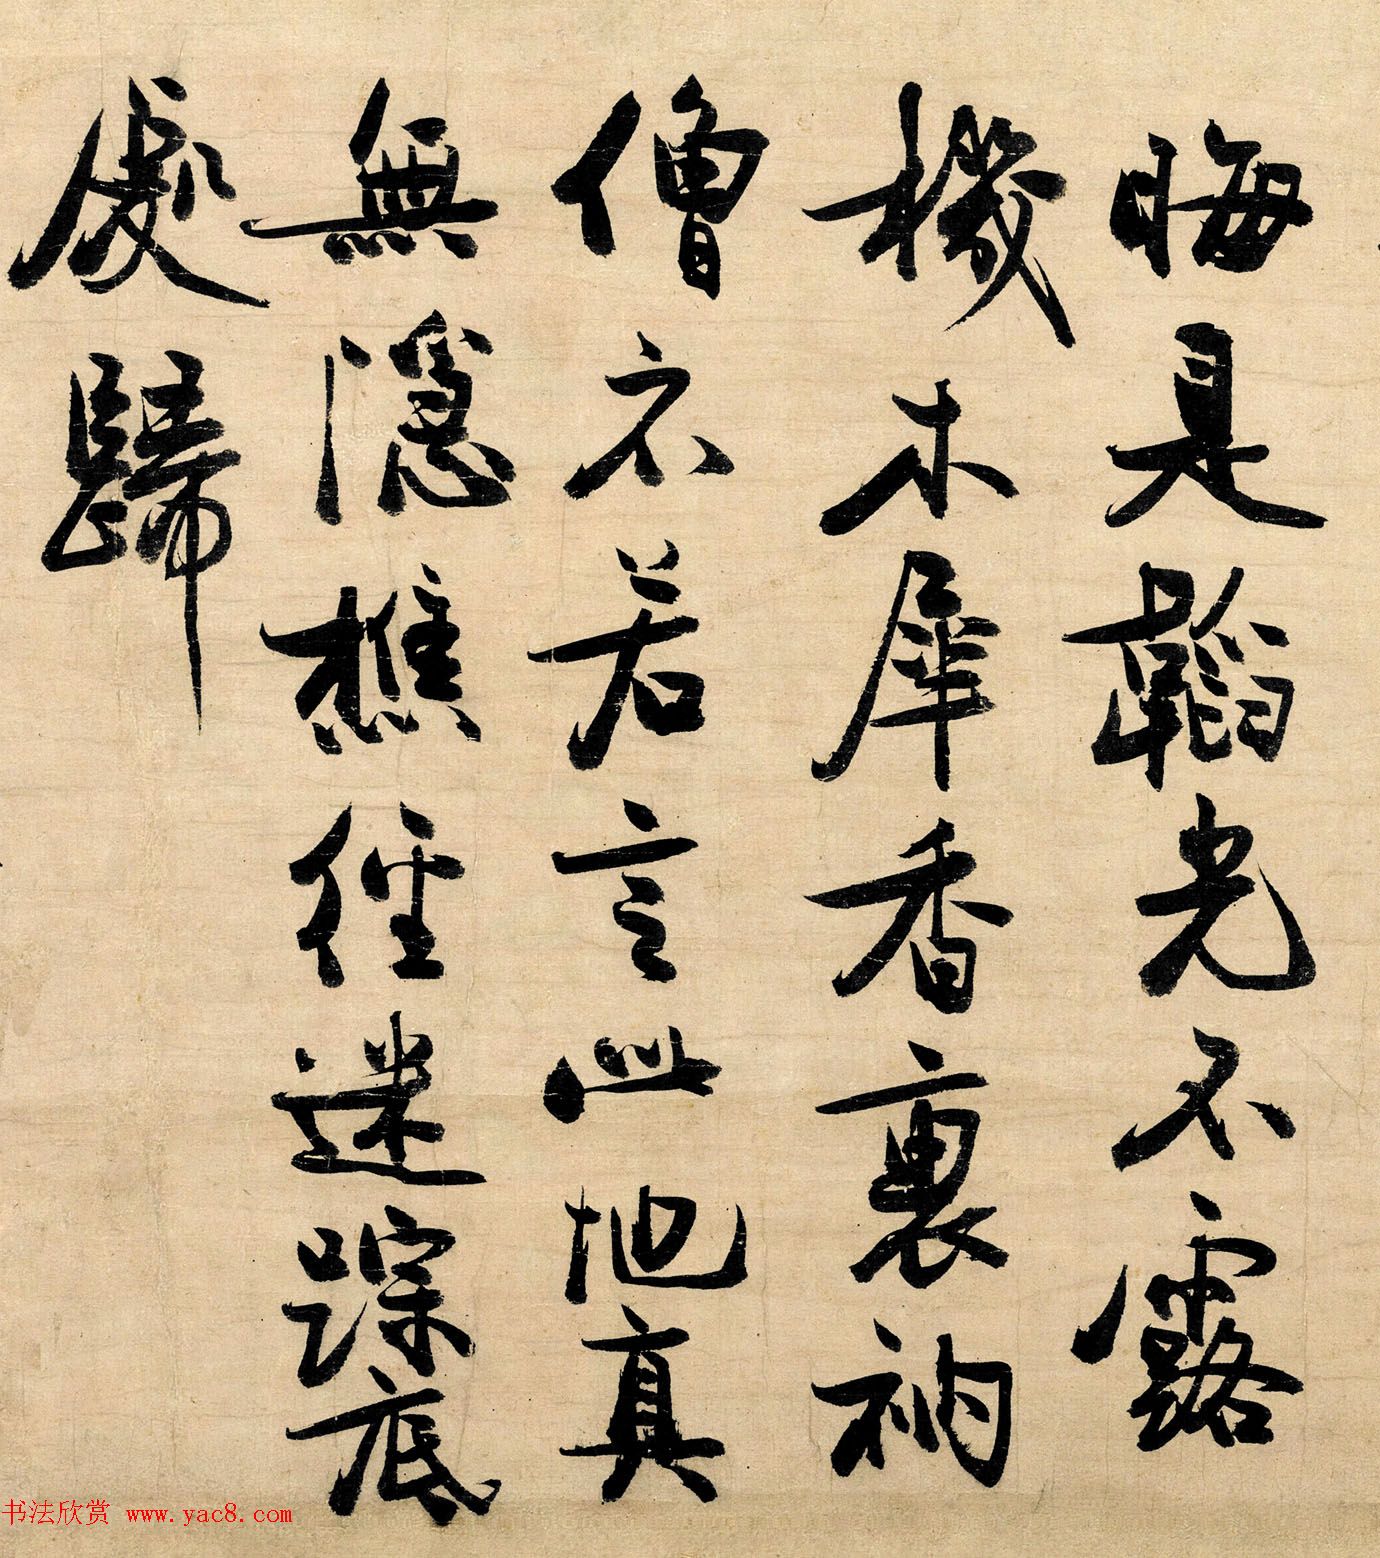 晦是韜光不露
機木犀香裏衲
僧衣若言此地真
無隱樵徑迷踪底
處歸
书法欣赏 www.yac8.com